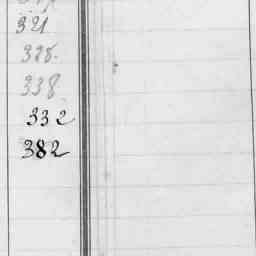 321
328.
338
332
382